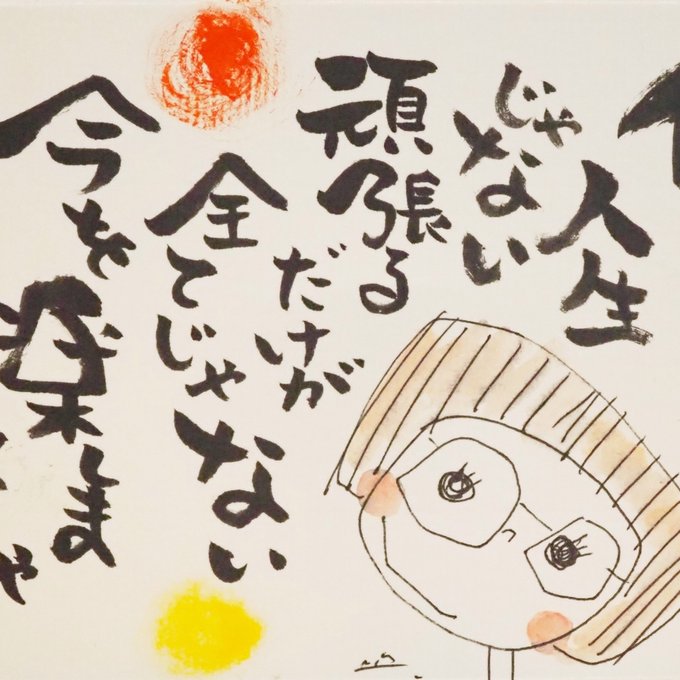 人生
じゃない
頑張る
だけが
全てじゃない
今を楽しま